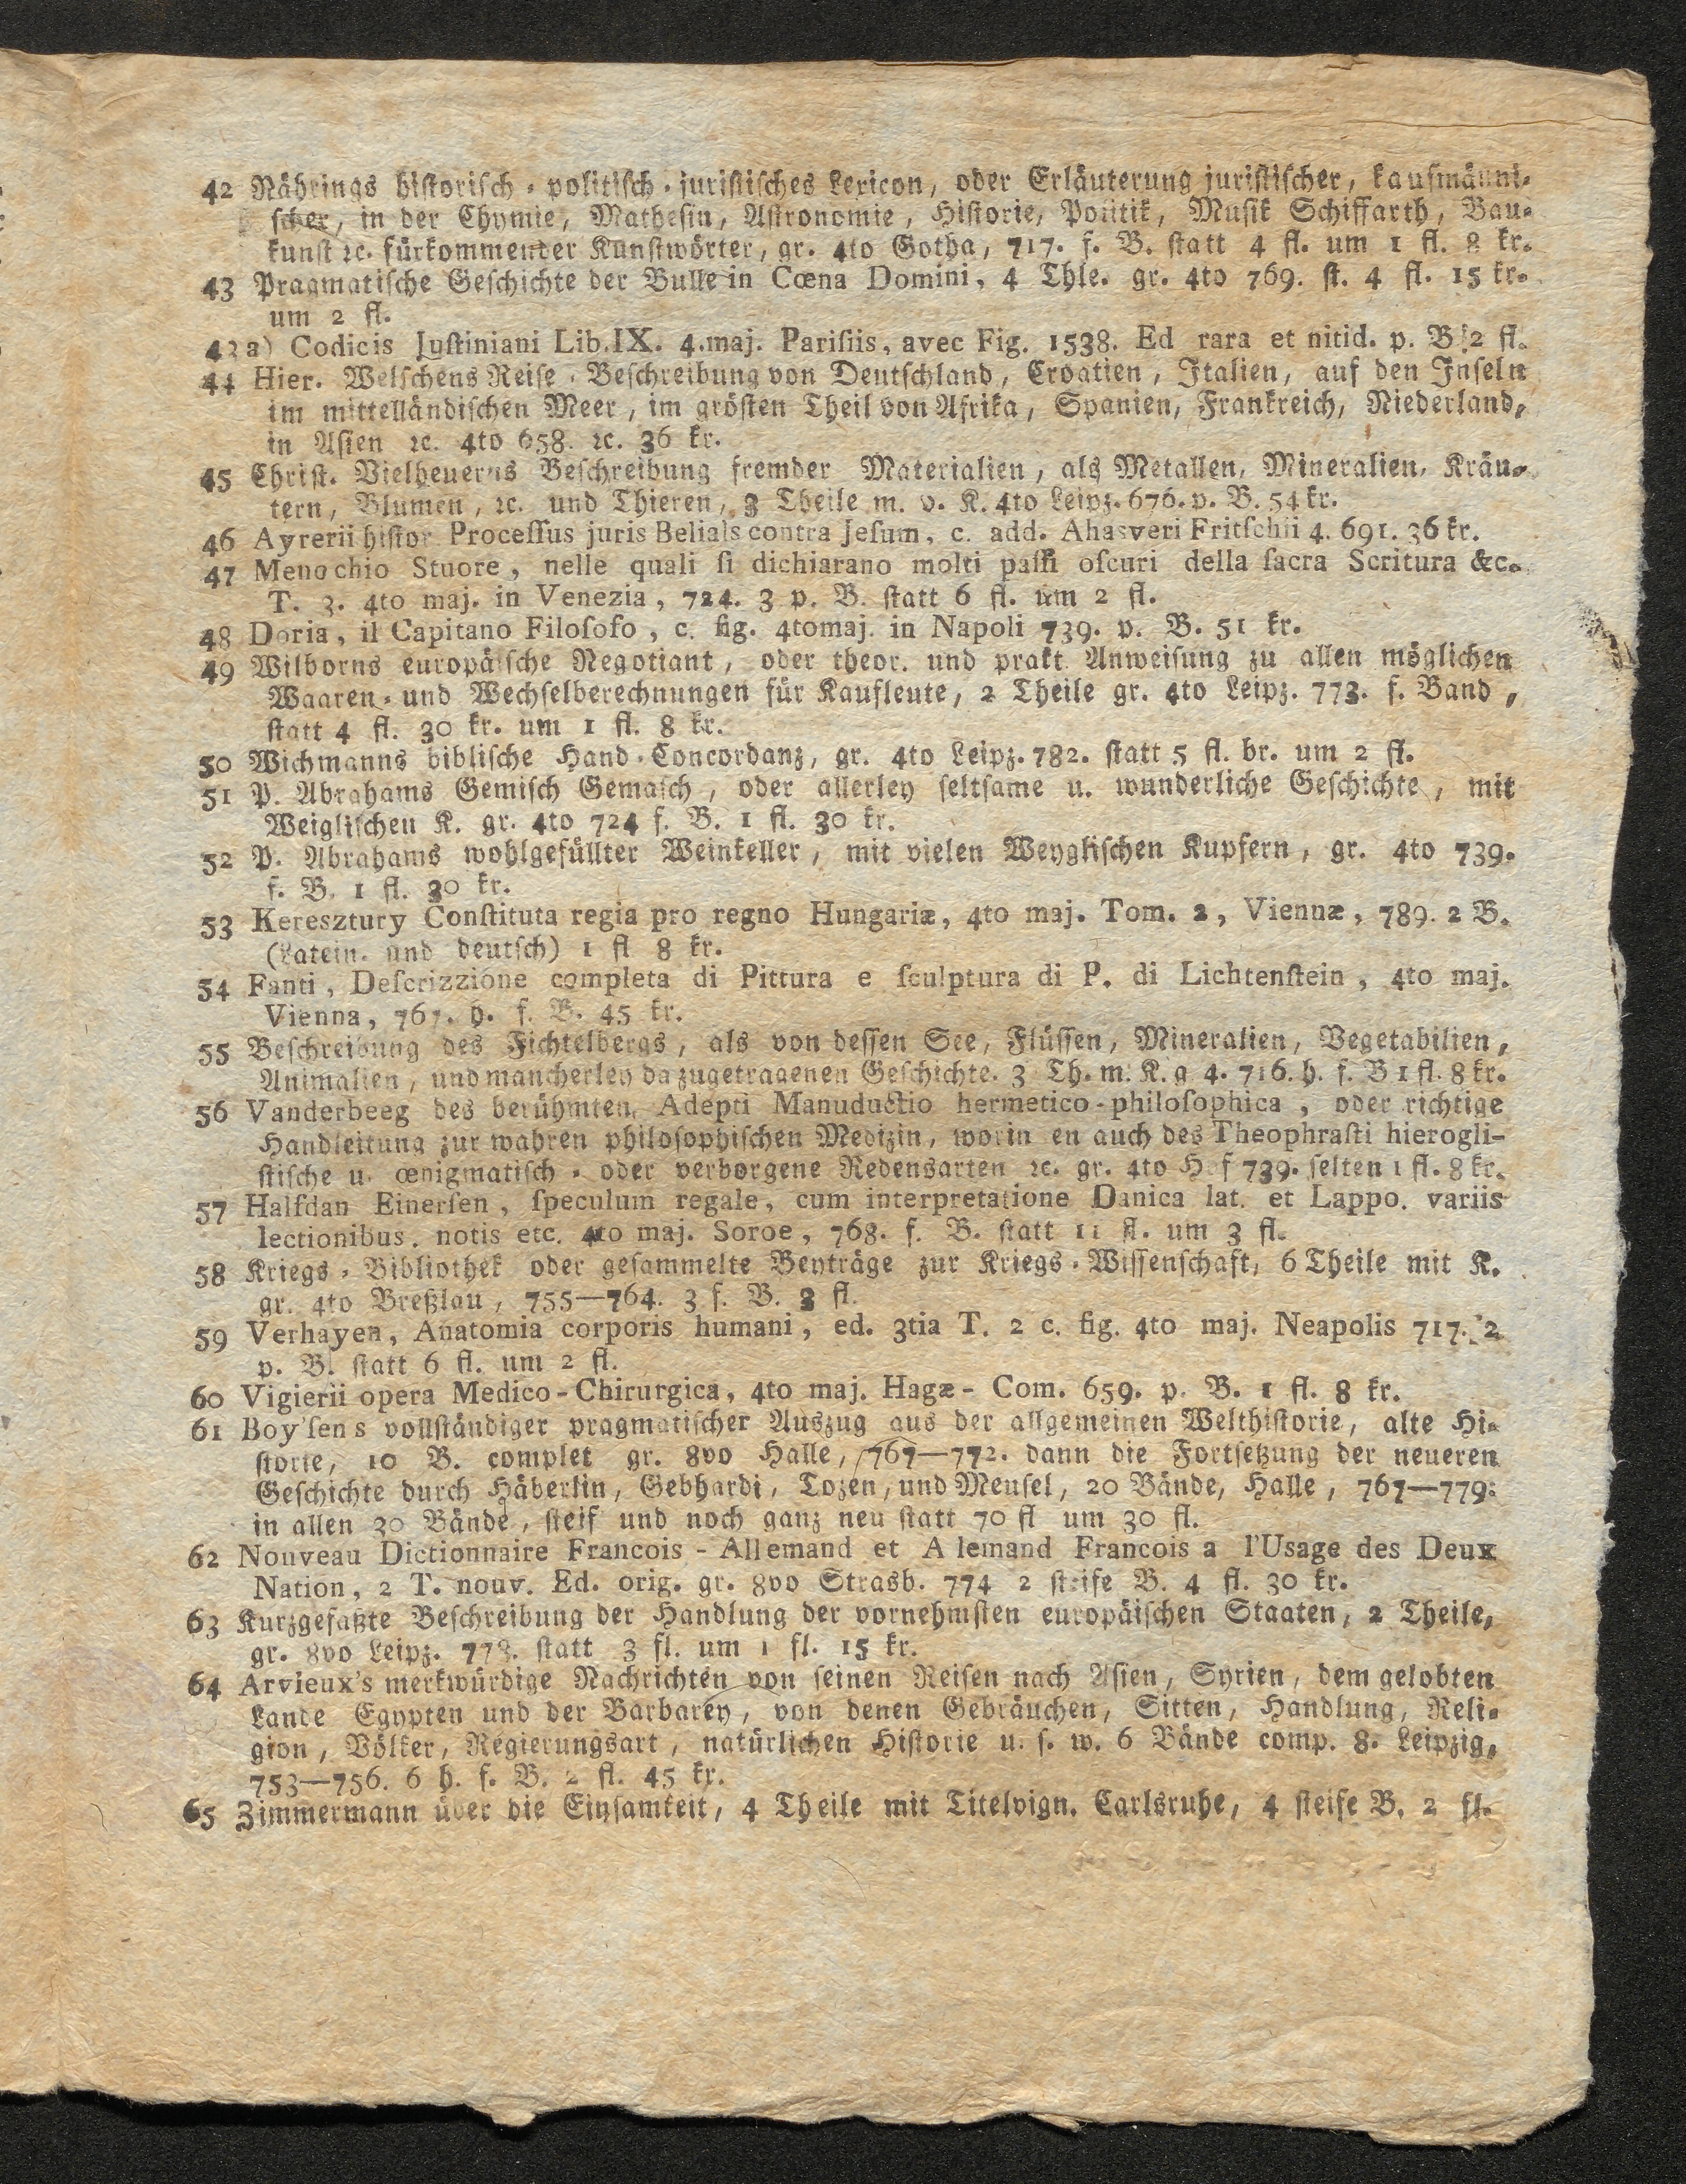 42 Nährings historisch-politisch-juristisches Lexicon, oder Erläuterung juristischer, kaufmänni-
scher, in der Chymie, Mathesin, Astronomie, Historie, Politik, Musik Schiffarth, Bau-
kunst ꝛc. fürkommender Kunstwörter, gr. 4to Gotha, 717. f. B. statt 4 fl. um 1 fl. 8 kr.
43 Pragmatische Geschichte der Bulle in Cœna Domini, 4 Thle. gr. 4to 769. st. 4 fl. 15 kr.
um 2 fl.
43a) Codicis Iustiniani Lib. IX. 4.maj. Parisiis, avec Fig. 1538. Ed rara et nitid. p. B 2 fl.
44 Hier. Welschens Reise-Beschreibung von Deutschland, Croatien, Italien, auf den Inseln
im mittelländischen Meer, im grösten Theil von Afrika, Spanien, Frankreich, Niederland,
in Asien ꝛc. 4to 658. ꝛc. 36 kr.
45 Christ. Vielheuerns Beschreibung fremder Materialien, als Metallen, Mineralien, Kräu-
tern, Blumen, ꝛc. und Thieren, 3 Theile m. v. K. 4to Leipz. 676. p. B. 54 kr.
46 Ayrerii histor Processus juris Belials contra Jesum, c. add. Ahasveri Fritschii 4. 691. 36 kr.
47 Menochio Stuore, nelle quali si dichiarano molti passi oscuri della sacra Scritura &c.
T. 3. 4to maj. in Venezia, 724. 3 p. B. statt 6 fl. um 2 fl.
48 Doria, il Capitano Filosofo, c. fig. 4to maj. in Napoli 739. p. B. 51 kr.
49 Wilborns europäische Negotiant, oder theor. und prakt. Anweisung zu allen möglichen
Waaren- und Wechselberechnungen für Kaufleute, 2 Theile gr. 4to Leipz. 773. f. Band,
statt 4 fl. 30 kr. um 1 fl. 8 kr.
50 Wichmanns biblische Hand-Concordanz, gr. 4to Leipz. 782. statt 5 fl. br. um 2 fl.
51 P. Abrahams Gemisch Gemasch, oder allerley seltsame u. wunderliche Geschichte, mit
Weiglischen K. gr. 4to 724 f. B. 1 fl. 30 kr.
52 P. Abrahams wohlgefüllter Weinkeller, mit vielen Weyglischen Kupfern, gr. 4to 739.
f. B. 1 fl. 30 kr.
53 Keresztury Constituta regia pro regno Hungariæ, 4to maj. Tom. 2, Viennæ, 789. 2 B.
(Latein. und deutsch) 1 fl 8 kr.
54 Fanti, Descrizzione completa di Pittura e sculptura di P. di Lichtenstein, 4to maj.
Vienna, 767. h. f. B. 45 kr.
55 Beschreibung des Fichtelbergs, als von dessen See, Flüssen, Mineralien, Vegetabilien,
Animalien, und mancherley da zugetragenen Geschichte. 3 Th. m. K. g 4. 716. h. f. B 1 fl. 8 kr.
56 Vanderbeeg des berühmten Adepti Manuductio hermetico-philosophica, oder richtige
Handleitung zur wahren philosophischen Medizin, worin en auch des Theophrasti hierogli-
stische u. œnigmatisch- oder verborgene Redensarten ꝛc. gr. 4to Hof 739. selten 1 fl. 8 kr.
57 Halfdan Einersen, speculum regale, cum interpretatione Danica lat. et Lappo. variis
lectionibus. notis etc. 4to maj. Soroe, 768. f. B. statt 11 fl. um 3 fl.
58 Kriegs-Bibliothek oder gesammelte Beyträge zur Kriegs-Wissenschaft, 6 Theile mit K.
gr. 4to Breßlau, 755—764. 3 f. B. 3 fl.
59 Verhayen, Anatomia corporis humani, ed. 3tia T. 2 c. fig. 4to maj. Neapolis 717. 2
p. B. statt 6 fl. um 2 fl.
60 Vigierii opera Medico-Chirurgica, 4to maj. Hagæ-Com. 659. p. B. 1 fl. 8 kr.
61 Boy'sens vollständiger pragmatischer Auszug aus der allgemeinen Welthistorie, alte Hi-
storie, 10 B. complet gr. 8vo Halle, 767—772. dann die Fortsetzung der neueren
Geschichte durch Häberlin, Gebhardi, Tozen, und Meusel, 20 Bände, Halle, 767—779:
in allen 30 Bände, steif und noch ganz neu statt 70 fl um 30 fl.
62 Nouveau Dictionnaire Francois-Allemand et A lemand Francois a l'Usage des Deux
Nation, 2 T. nouv. Ed. orig. gr. 8vo Strasb. 774 2 steife B. 4 fl. 30 kr.
63 Kurzgefaßte Beschreibung der Handlung der vornehmsten europäischen Staaten, 2 Theile,
gr. 8vo Leipz. 778. statt 3 fl. um 1 fl. 15 kr.
64 Arvieux's merkwürdige Nachrichten von seinen Reisen nach Asien, Syrien, dem gelobten
Lande Egypten und der Barbarey, von denen Gebräuchen, Sitten, Handlung, Reli-
gion, Völker, Regierungsart, natürlichen Historie u. s. w. 6 Bände comp. 8. Leipzig,
753—756. 6 h. f. B. 2 fl. 45 kr.
65 Zimmermann über die Einsamkeit, 4 Theile mit Titelvign. Carlsruhe, 4 steife B. 2 fl.